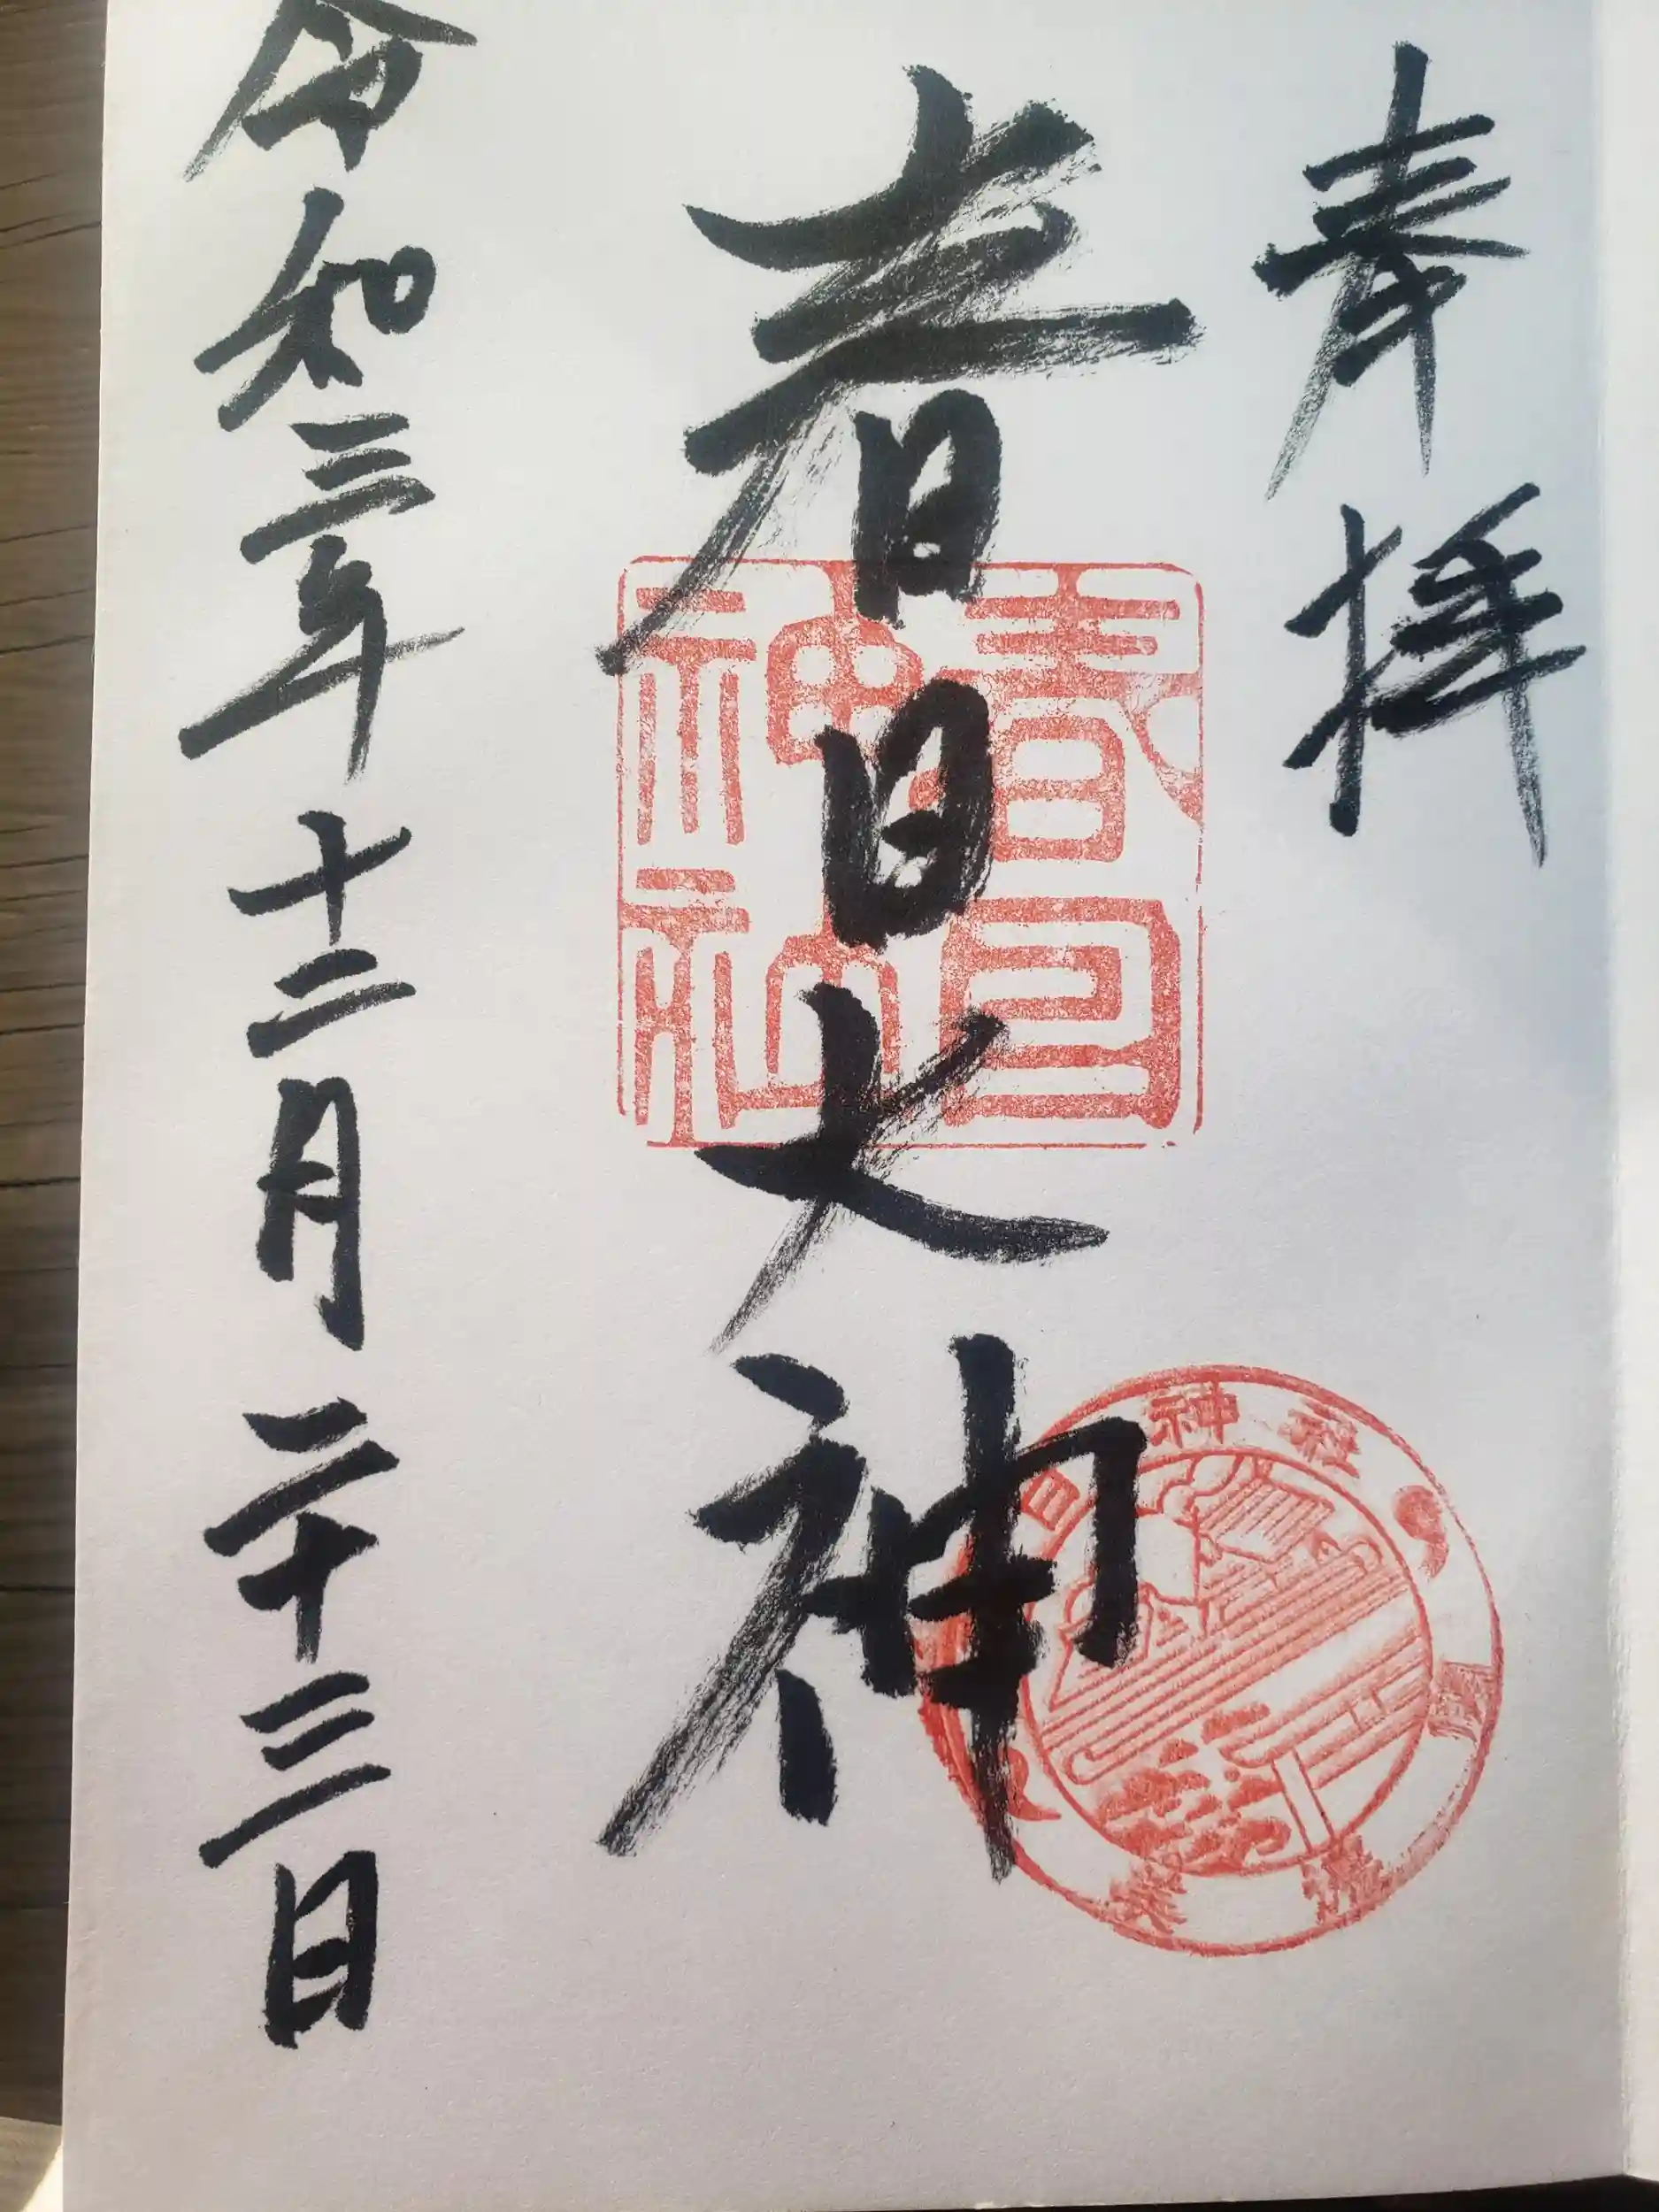 奉拝
春日大神
春日神社
日神社
令和三年十二月二十三日